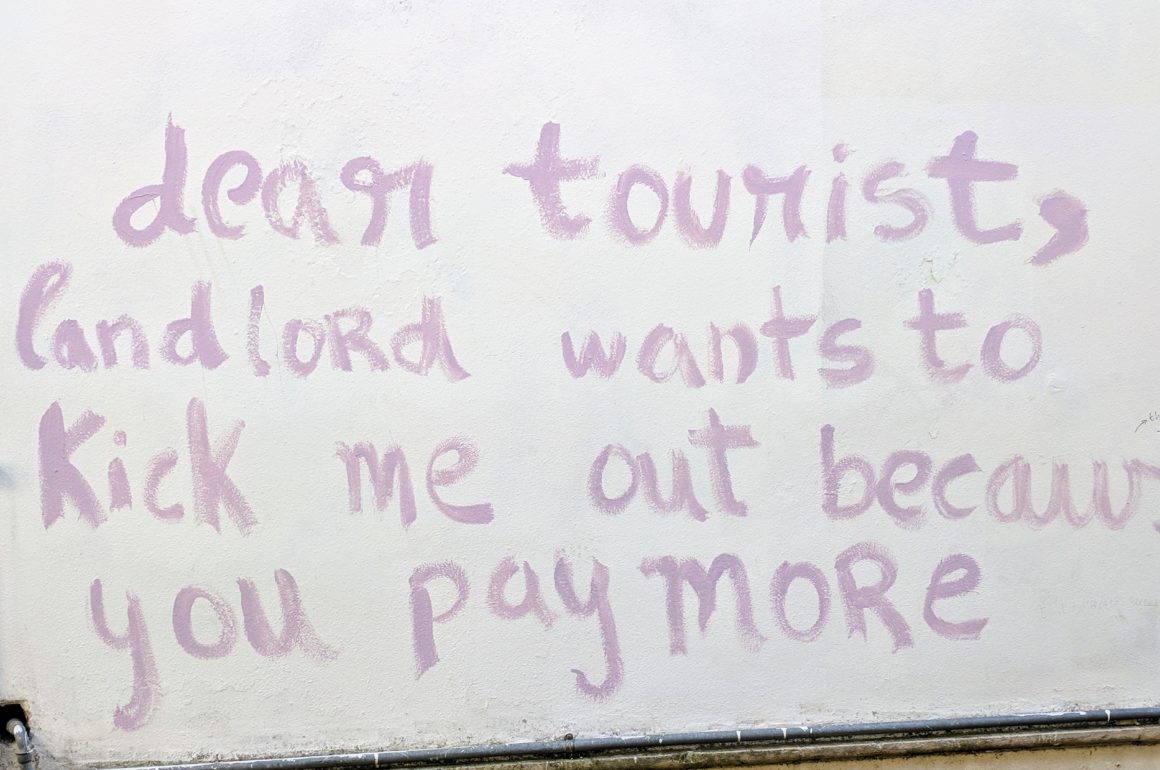 dear tourist,
landlord wants to
Kick me out becaus
you pay moRe